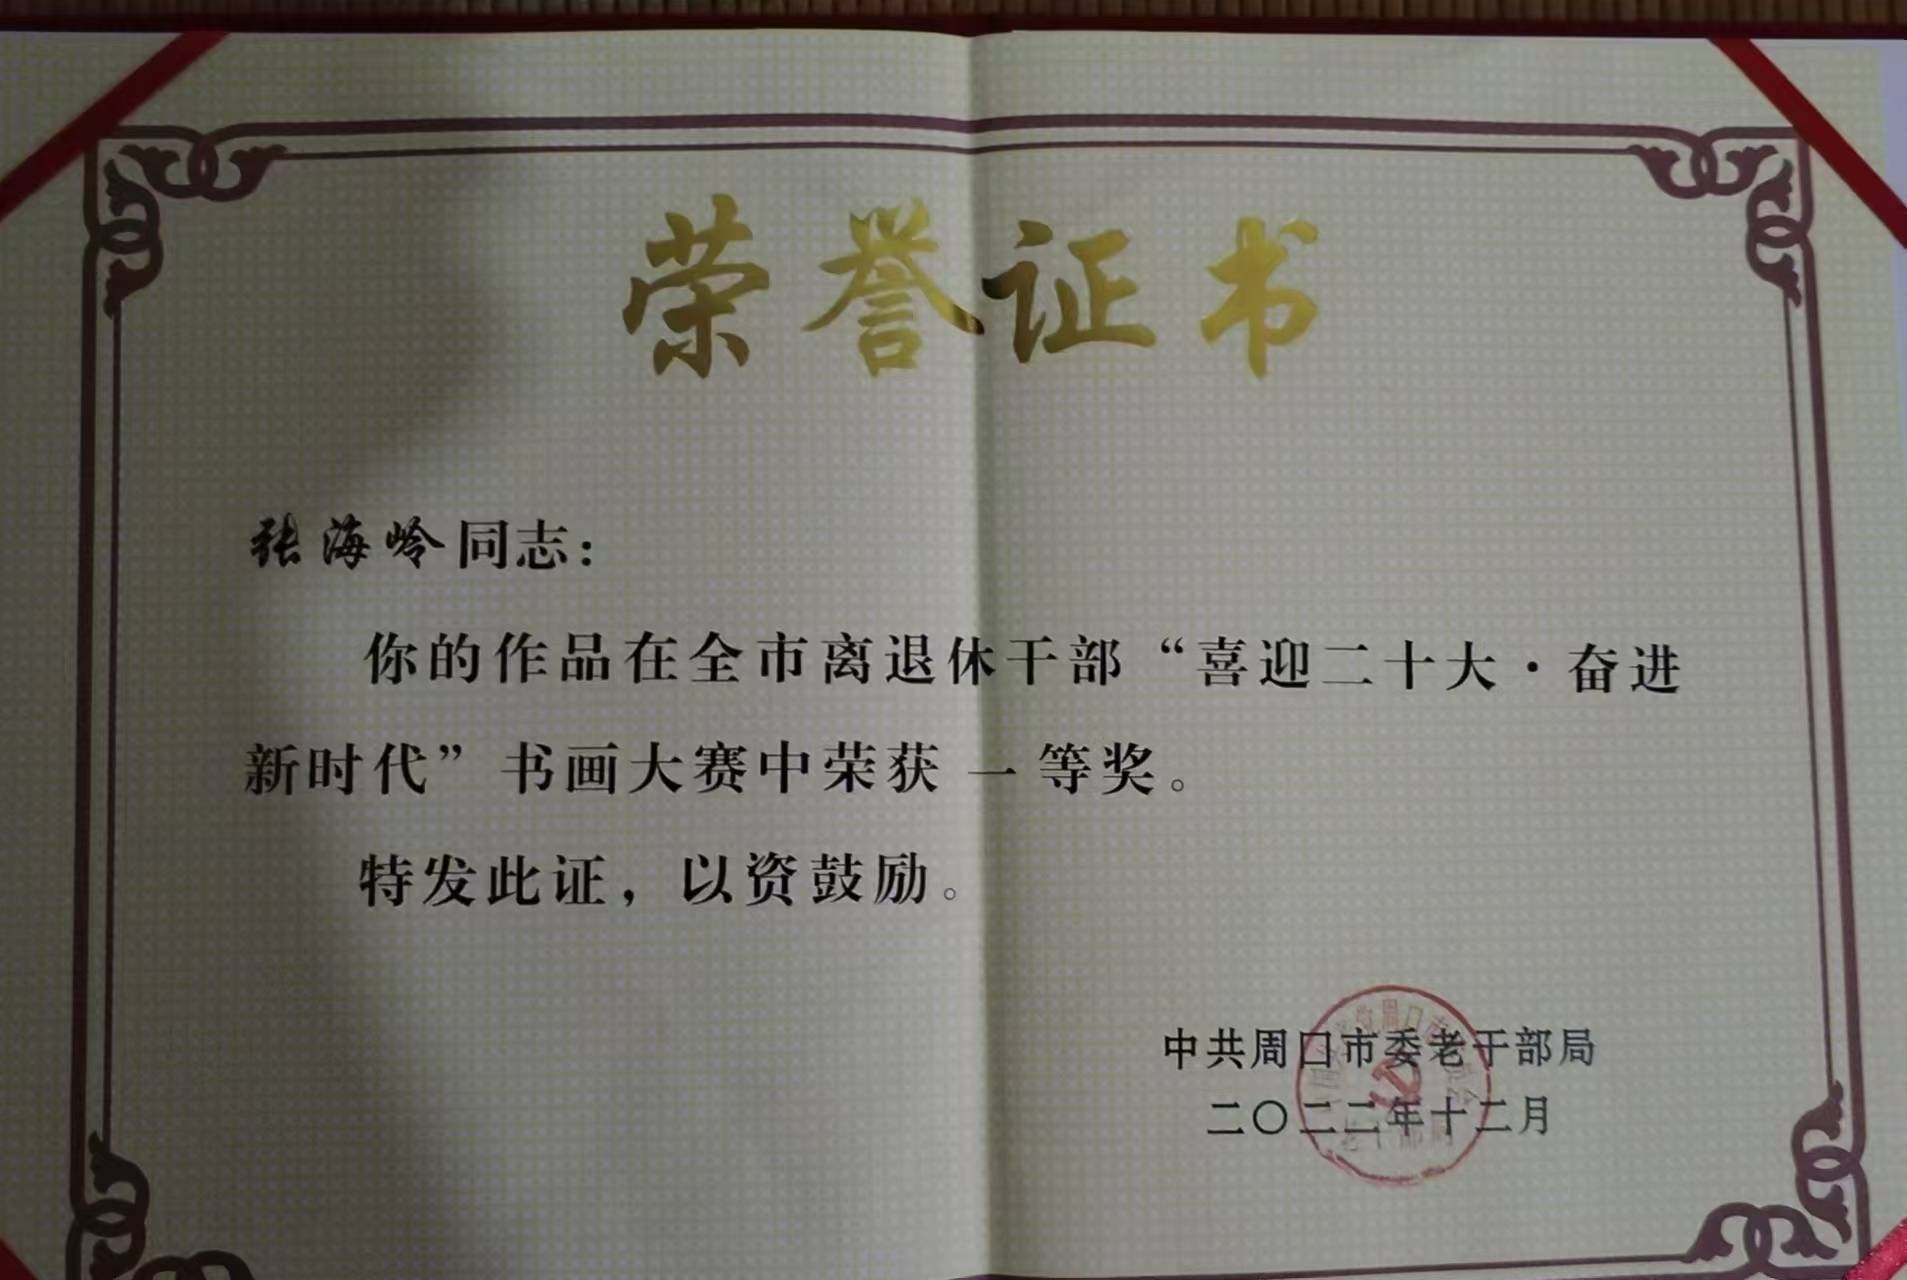 荣誉证书
张海岭同志：
你的作品在全市离退休干部“喜迎二十大·奋进
新时代”书画大赛中荣获一等奖。
特发此证，以资鼓励。
中共周口市委老干部局
二〇二二年十二月